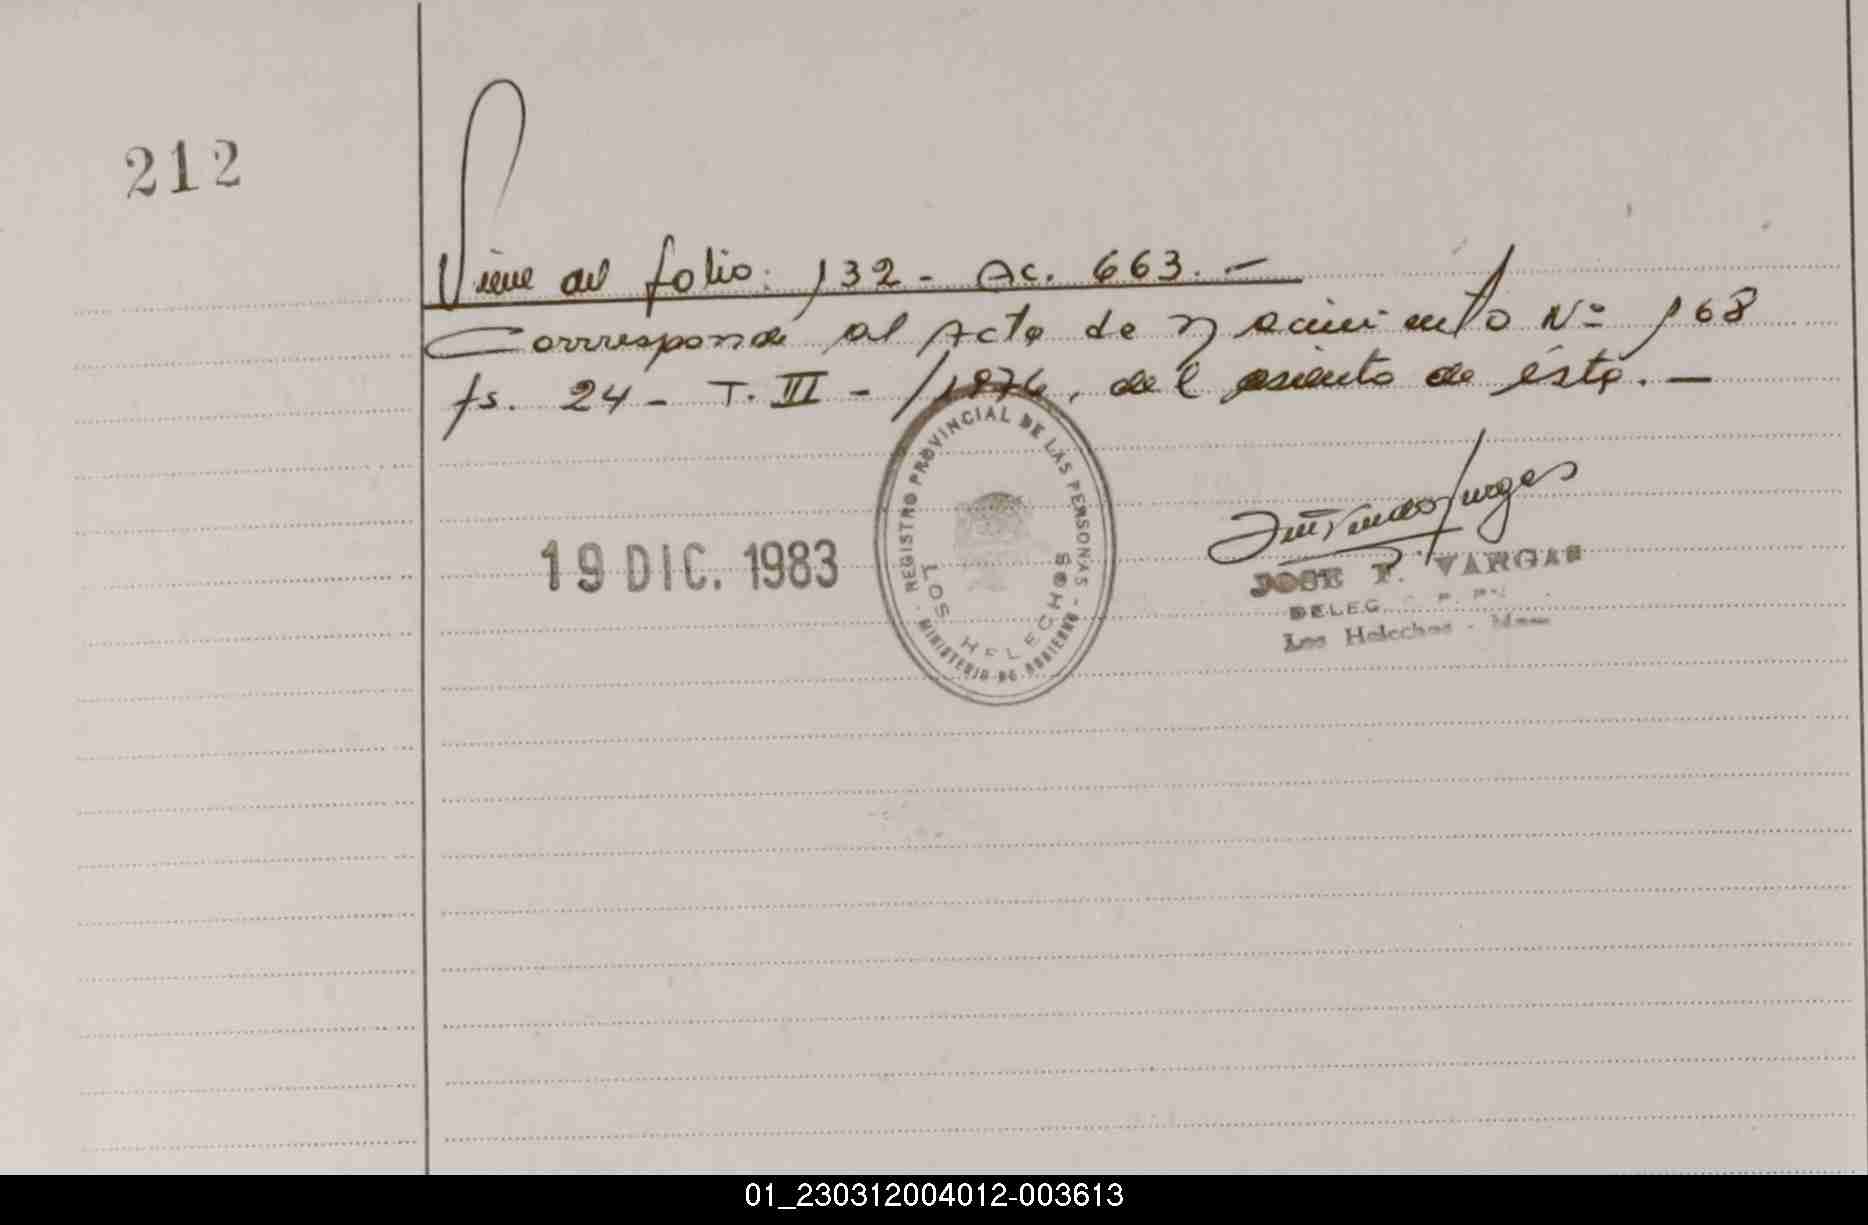 212
Viene del folio. 132 - Ac. 663. -
Corresponde al Acta de nacimiento Nº 168
fs. 24 - T. III - /1976, del asiento de ésta. -
19 DIC. 1983
REGISTRO PROVINCIAL DE LAS PERSONAS
- MINISTERIO DE GOBIERNO -
LOS HELECHOS
JOSE F. VARGAS
DELEG.
Los Helechos -
01_230312004012-003613